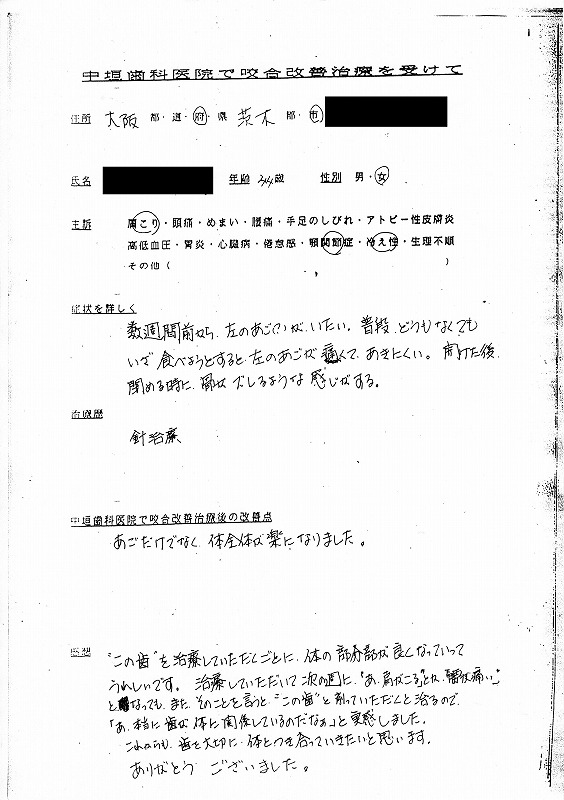 中垣歯科医院で咬合改善治療を受けて
住所 大阪 都・道・府・県 茨木 郡・市
氏名 年齢 44歳 性別 男・女
主訴 肩こり・頭痛・めまい・腰痛・手足のしびれ・アトピー性皮膚炎
高低血圧・胃炎・心臓病・倦怠感・顎関節症・冷え性・生理不順
その他( )
症状を詳しく
数週間前から、左のあごがいたい。普段、どうもなくても
いざ食べようとすると、左のあごが痛くて、あきにくい。開けた後、
閉める時に、骨がズレるような感じがする。
治療歴
針治療
中垣歯科医院で咬合改善治療後の改善点
あごだけでなく、体全体が楽になりました。
感想
"この歯"を治療していただくごとに、体の部分部が良くなっていって
うれしいです。治療していただいて次の週に、「あ、肩がこる」とか、「腰が痛い」
となっても、また、そのことを言うと、"この歯"と削っていただくと治るので、
「あ、本当に歯が体に関係しているのだなぁ」と実感しました。
これからも、歯を大切に、体とつき合っていきたいと思います。
ありがとう ございました。